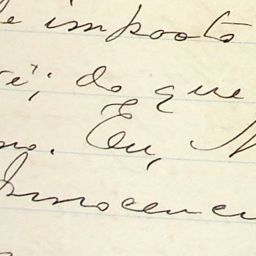 e imposto
é; do que
no. Eu, N
Innocenci